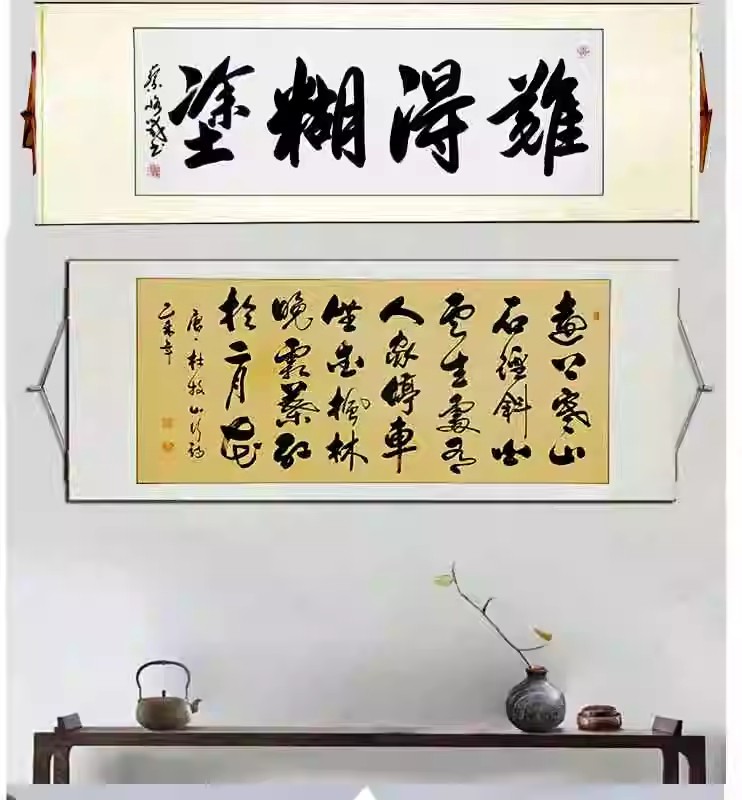 難得糊塗
遠上寒山
石徑斜白
雲生處有
人家停車
坐愛楓林
晚霜葉紅
於二月花
唐杜牧山行詩
乙未年